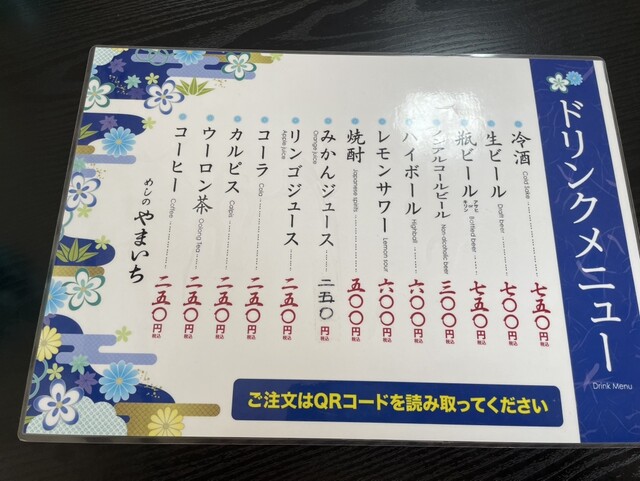 ドリンクメニュー
Drink Menu
冷酒 Cold Sake 七五〇円 税込
生ビール Draft beer 七〇〇円 税込
瓶ビール アサヒ or キリン Bottled beer 七五〇円 税込
ノンアルコールビール Non-alcoholic beer 三〇〇円 税込
ハイボール Highball 六〇〇円 税込
レモンサワー Lemon sour 六〇〇円 税込
焼酎 Japanese spirits 五〇〇円 税込
みかんジュース Orange juice 二五〇円 税込
リンゴジュース Apple juice 二五〇円 税込
コーラ Cola 二五〇円 税込
カルピス Calpis 二五〇円 税込
ウーロン茶 Oolong Tea 二五〇円 税込
コーヒー Coffee 二五〇円 税込
めしの やまいち
ご注文はQRコードを読み取ってください